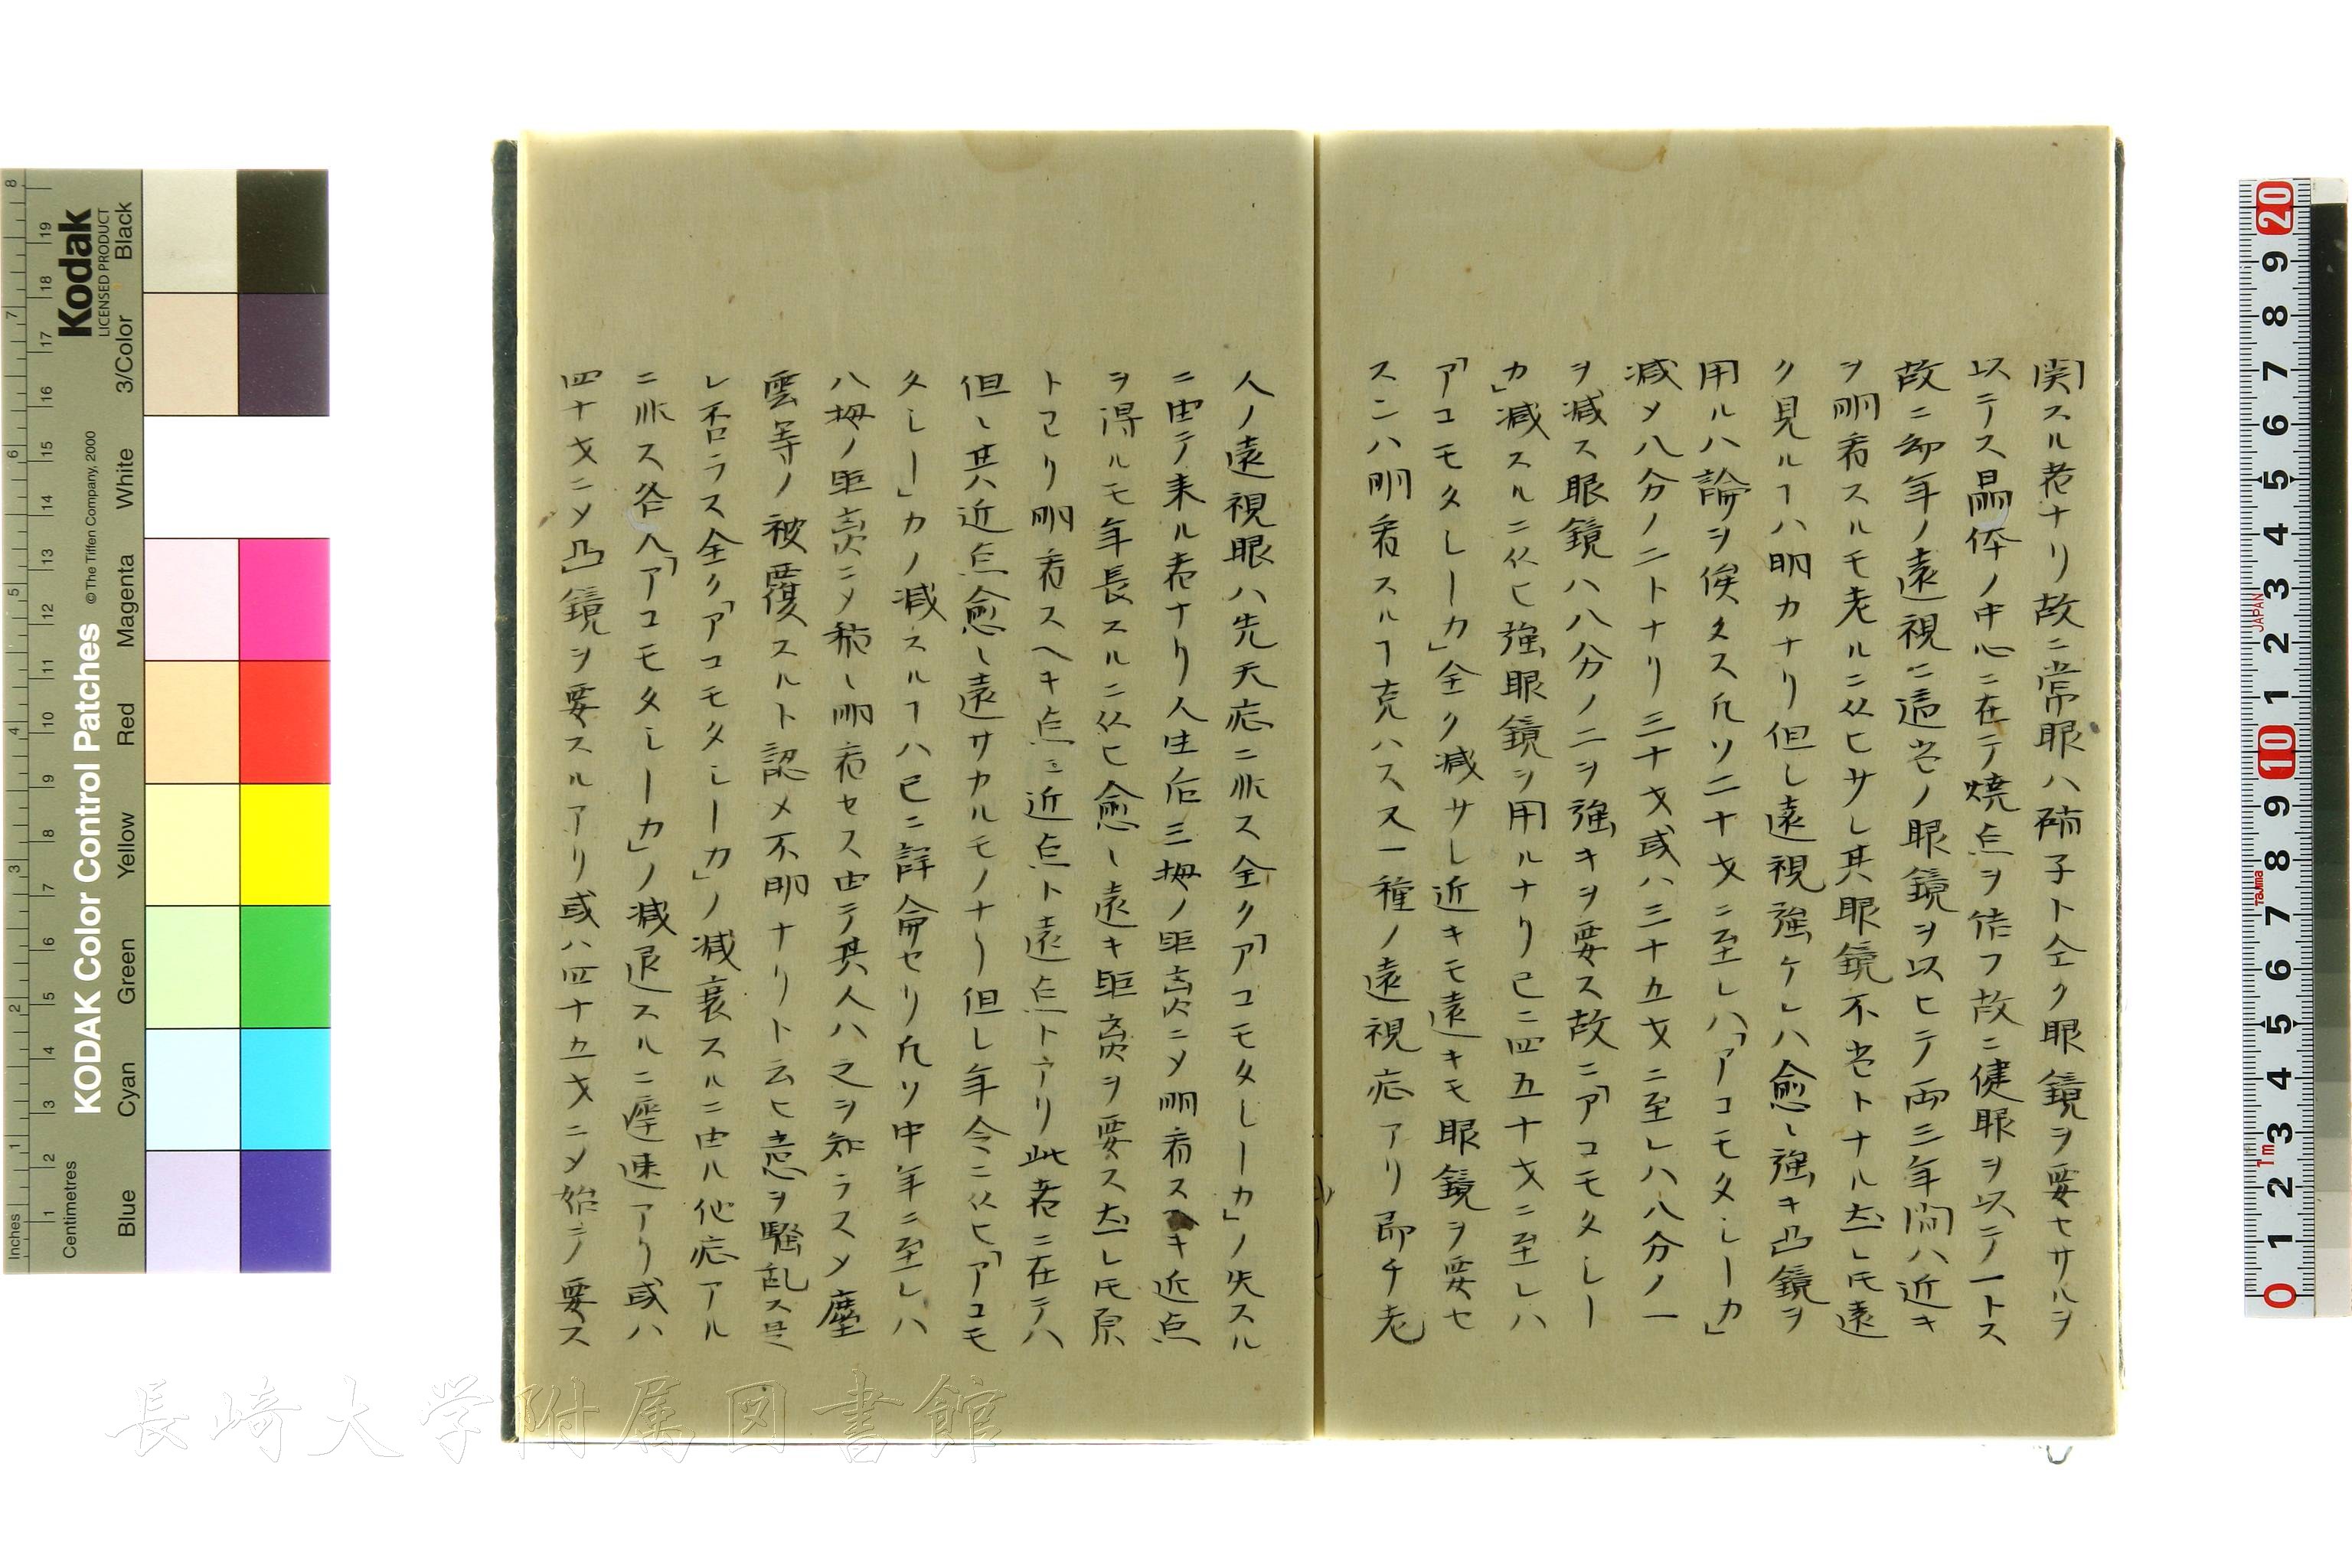 関スル者ナリ故ニ常眼ハ硝子ト全ク眼鏡ヲ要セサルヲ
以テス晶体ノ中心ニ在テ焼点ヲ結フ故ニ健眼ヲ以テ一トス
故ニ幼年ノ遠視ニ適当ノ眼鏡ヲ以ヒテ両三年間ハ近キ
ヲ明看スルモ老ルニ従ヒサレ其眼鏡不当トナル然レ𪜈遠
ク見ルヿハ明カナリ但シ遠視強ケレハ愈〻強キ凸鏡ヲ
用ルハ論ヲ俟タス凡ソ二十才ニ至レハ「アコモタシーカ」
減メ八分ノ二トナリ三十才或ハ三十五才ニ至レハ八分ノ一
ヲ減ス眼鏡ハ八分ノ二ヲ強キヲ要ス故ニ「アコモタシー
カ」減スルニ従ヒ強眼鏡ヲ用ルナリ已ニ四五十才ニ至レハ
「アコモタシーカ」全ク減サレ近キモ遠キモ眼鏡ヲ要セ
スンハ明看スルヿ克ハス又一種ノ遠視症アリ即チ老
人ノ遠視眼ハ先天症ニ非ス全ク「アコモタシーカ」ノ失スル
ニ由テ来ル者ナリ人生后三拇ノ距離ニメ明看スヘキ近点
ヲ得ルモ年長スルニ従ヒ愈〻遠キ距離ヲ要ス然レ𪜈原
トヨリ明看スヘキ点ニ近点ト遠点トアリ此者ニ在テハ
但〻其ハ近点愈〻遠サカルモノナリ但シ年令ニ従ヒ「アコモ
タシー」カノ減スルヿハ已ニ詳論セリ凡ソ中年ニ至レハ
八拇ノ距離ニメ稍〻明看セス由テ其人ハ之ヲ知ラスメ塵
雲等ノ被覆スルト認メ不明ナリト云ヒ意ヲ騒乱ス是
レ否ラス全ク「アコモタシーカ」ノ減衰スルニ由ル他症アル
ニ非ス各人「アコモタシーカ」ノ減退スルニ遅速アリ或ハ
四十才ニメ凸鏡ヲ要スルアリ或ハ四十五才ニメ始テ要ス
KODAK Color Control Patches
Kodak
LICENSED PRODUCT
© The Tiffen Company, 2000
Inches
Centimetres
Blue
Cyan
Green
Yellow
Red
Magenta
White
3/Color
Black
JAPAN
Tajima
1m
長崎大学附属図書館